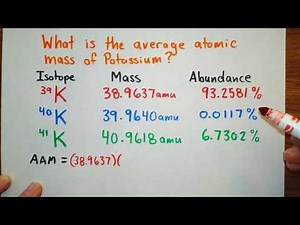 What is the average atomic
mass of Potassium?
Isotope Mass Abundance
³⁹K 38.9637amu 93.2581%
⁴⁰K 39.9640amu 0.0117%
⁴¹K 40.9618amu 6.7302%
AAM = (38.9637)(